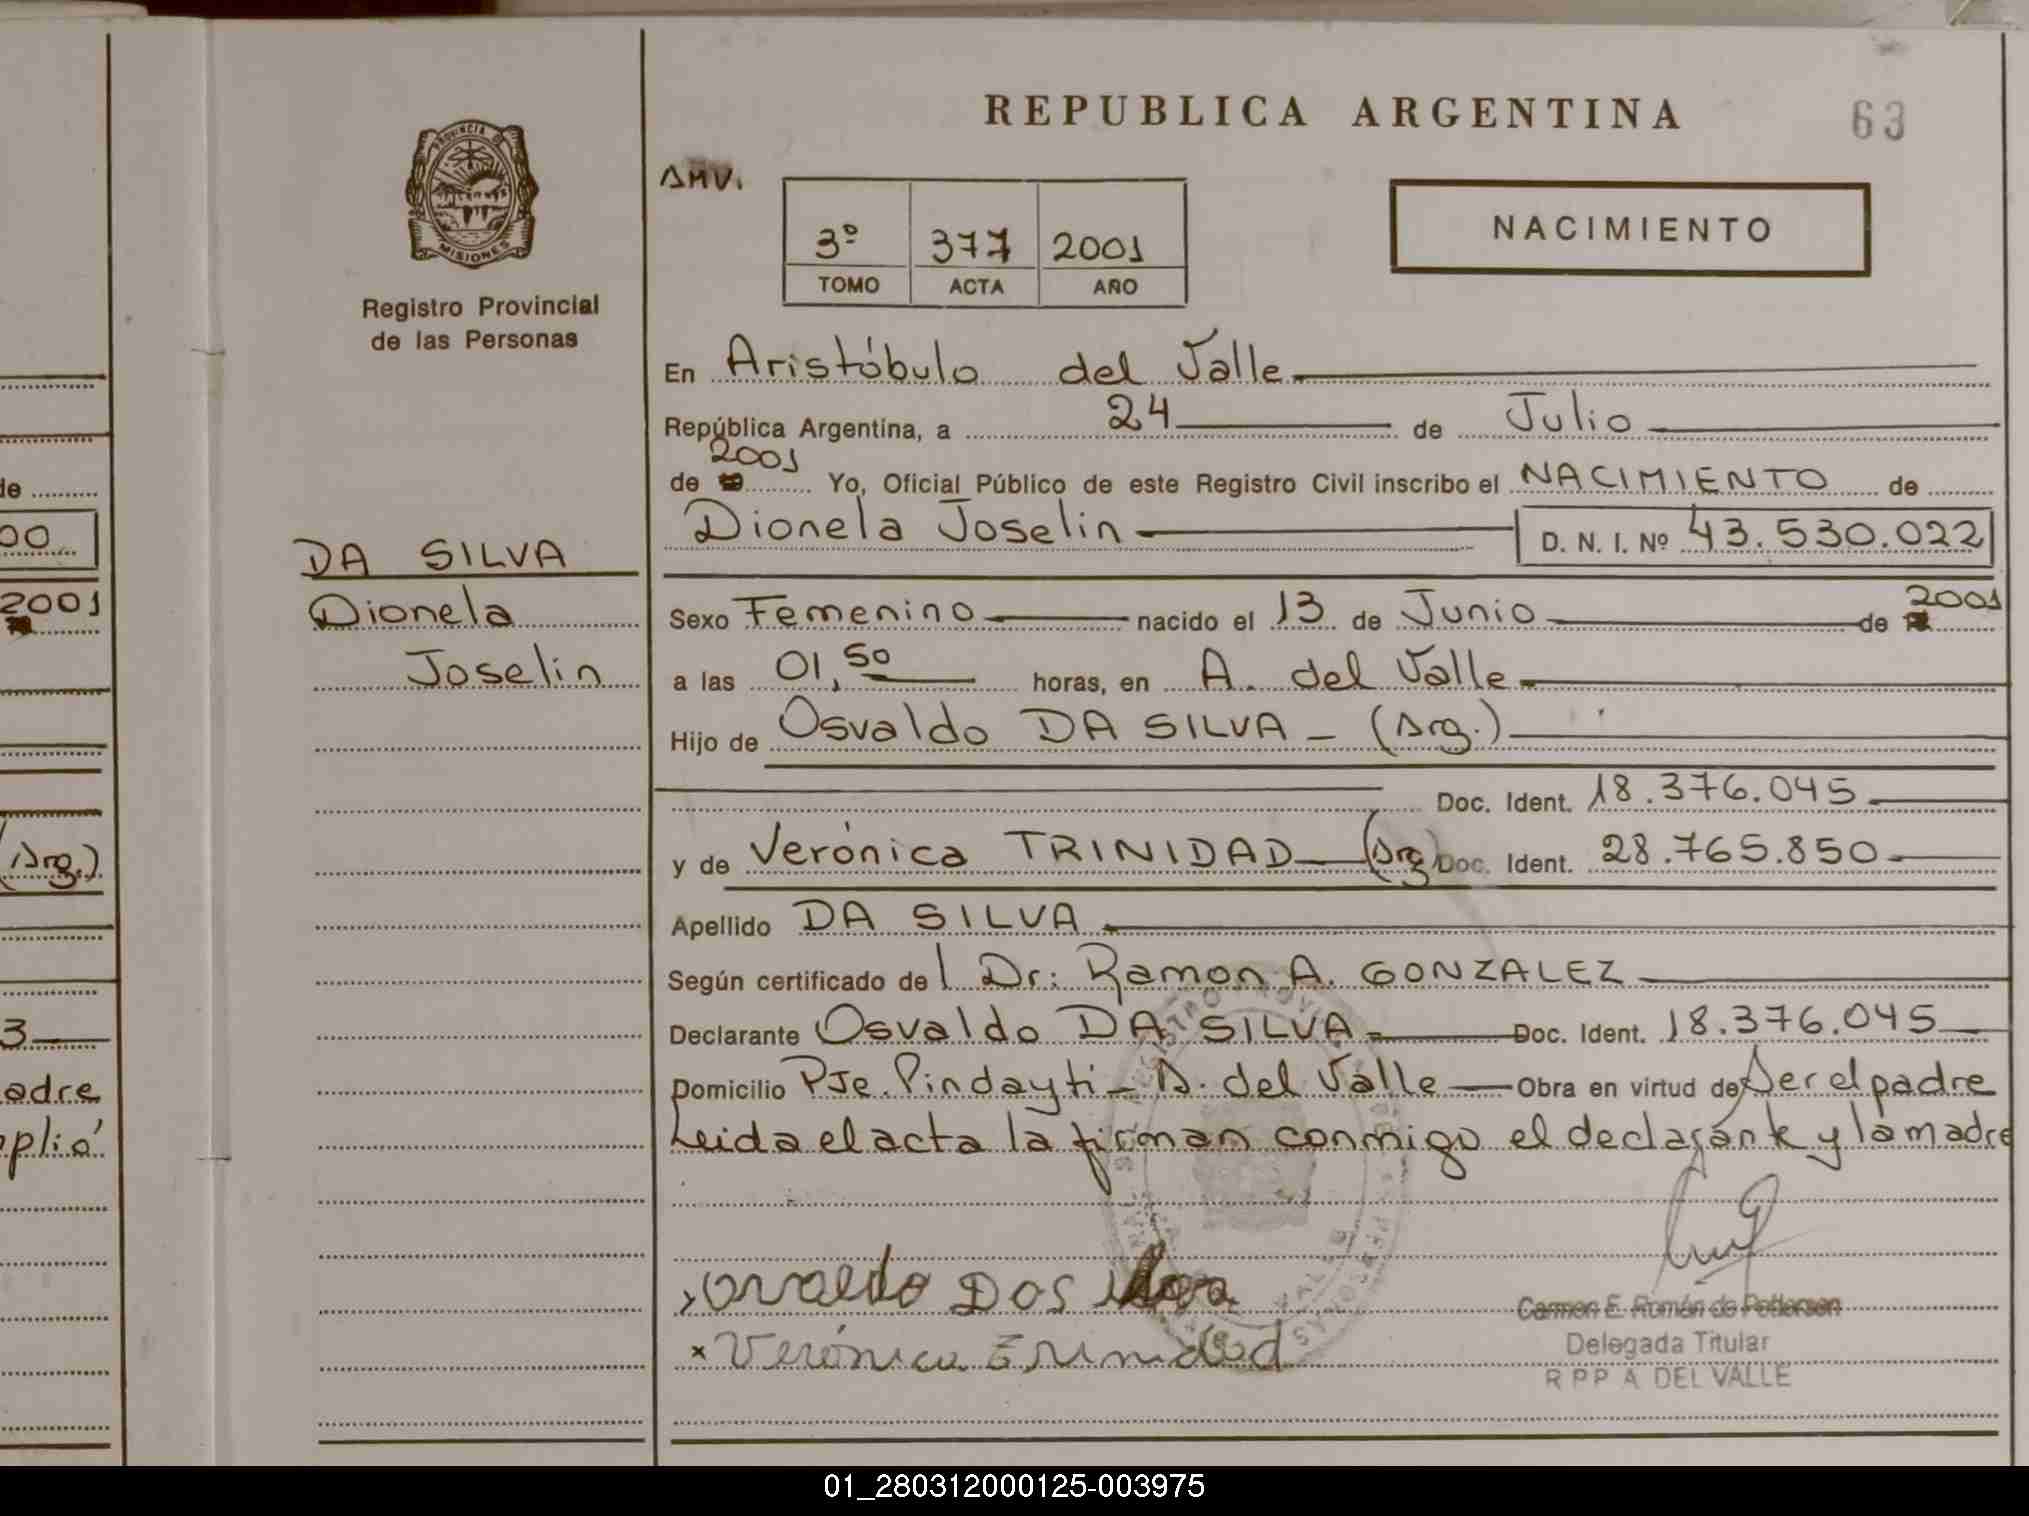 REPUBLICA ARGENTINA
63
PROVINCIA DE
MISIONES
Registro Provincial
de las Personas
AMV.
3º 377 2001
TOMO ACTA AÑO
NACIMIENTO
En Aristóbulo del Valle
República Argentina, a 24 de Julio
de 2001 Yo, Oficial Público de este Registro Civil inscribo el NACIMIENTO de
Dionela Joselin D. N. I. Nº 43.530.022
DA SILVA
Dionela
Joselin
Sexo Femenino nacido el 13 de Junio de 2001
a las 01,50 horas, en A. del Valle
Hijo de Osvaldo DA SILVA - (Arg.)
Doc. Ident. 18.376.045
y de Verónica TRINIDAD (Arg) Doc. Ident. 28.765.850
Apellido DA SILVA
Según certificado del Dr: Ramon A. GONZALEZ
Declarante Osvaldo DA SILVA Doc. Ident. 18.376.045
Domicilio Pje. Pindayti - A. del Valle Obra en virtud de Ser el padre
Leida el acta la firman conmigo el declarante y la madre
Osvaldo Dos
x Verónica Trinidad
Carmen E. Román de Pettersen
Delegada Titular
R P P A DEL VALLE
de
00
2001
(Arg.)
3
adre
plió
01_280312000125-003975